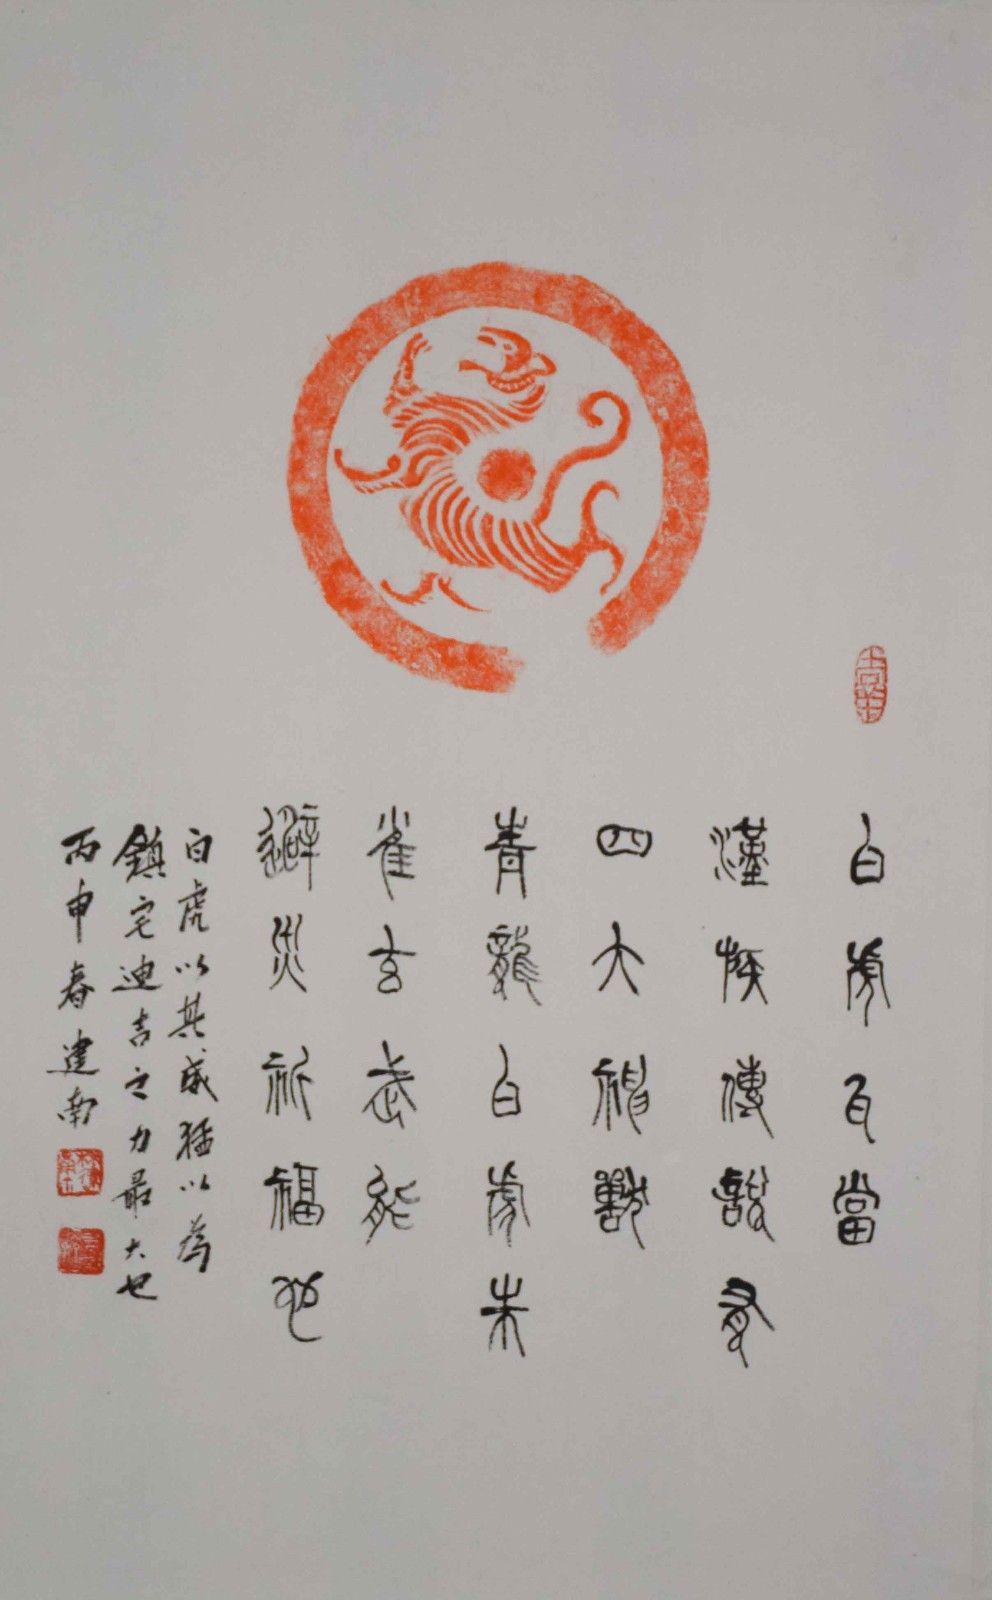 白虎瓦當
漢族傳說有
四大神獸
青龍白虎朱
雀玄武能
避災祈福也
白虎以其威猛以為
鎮宅迪吉之力最大也
丙申春建南